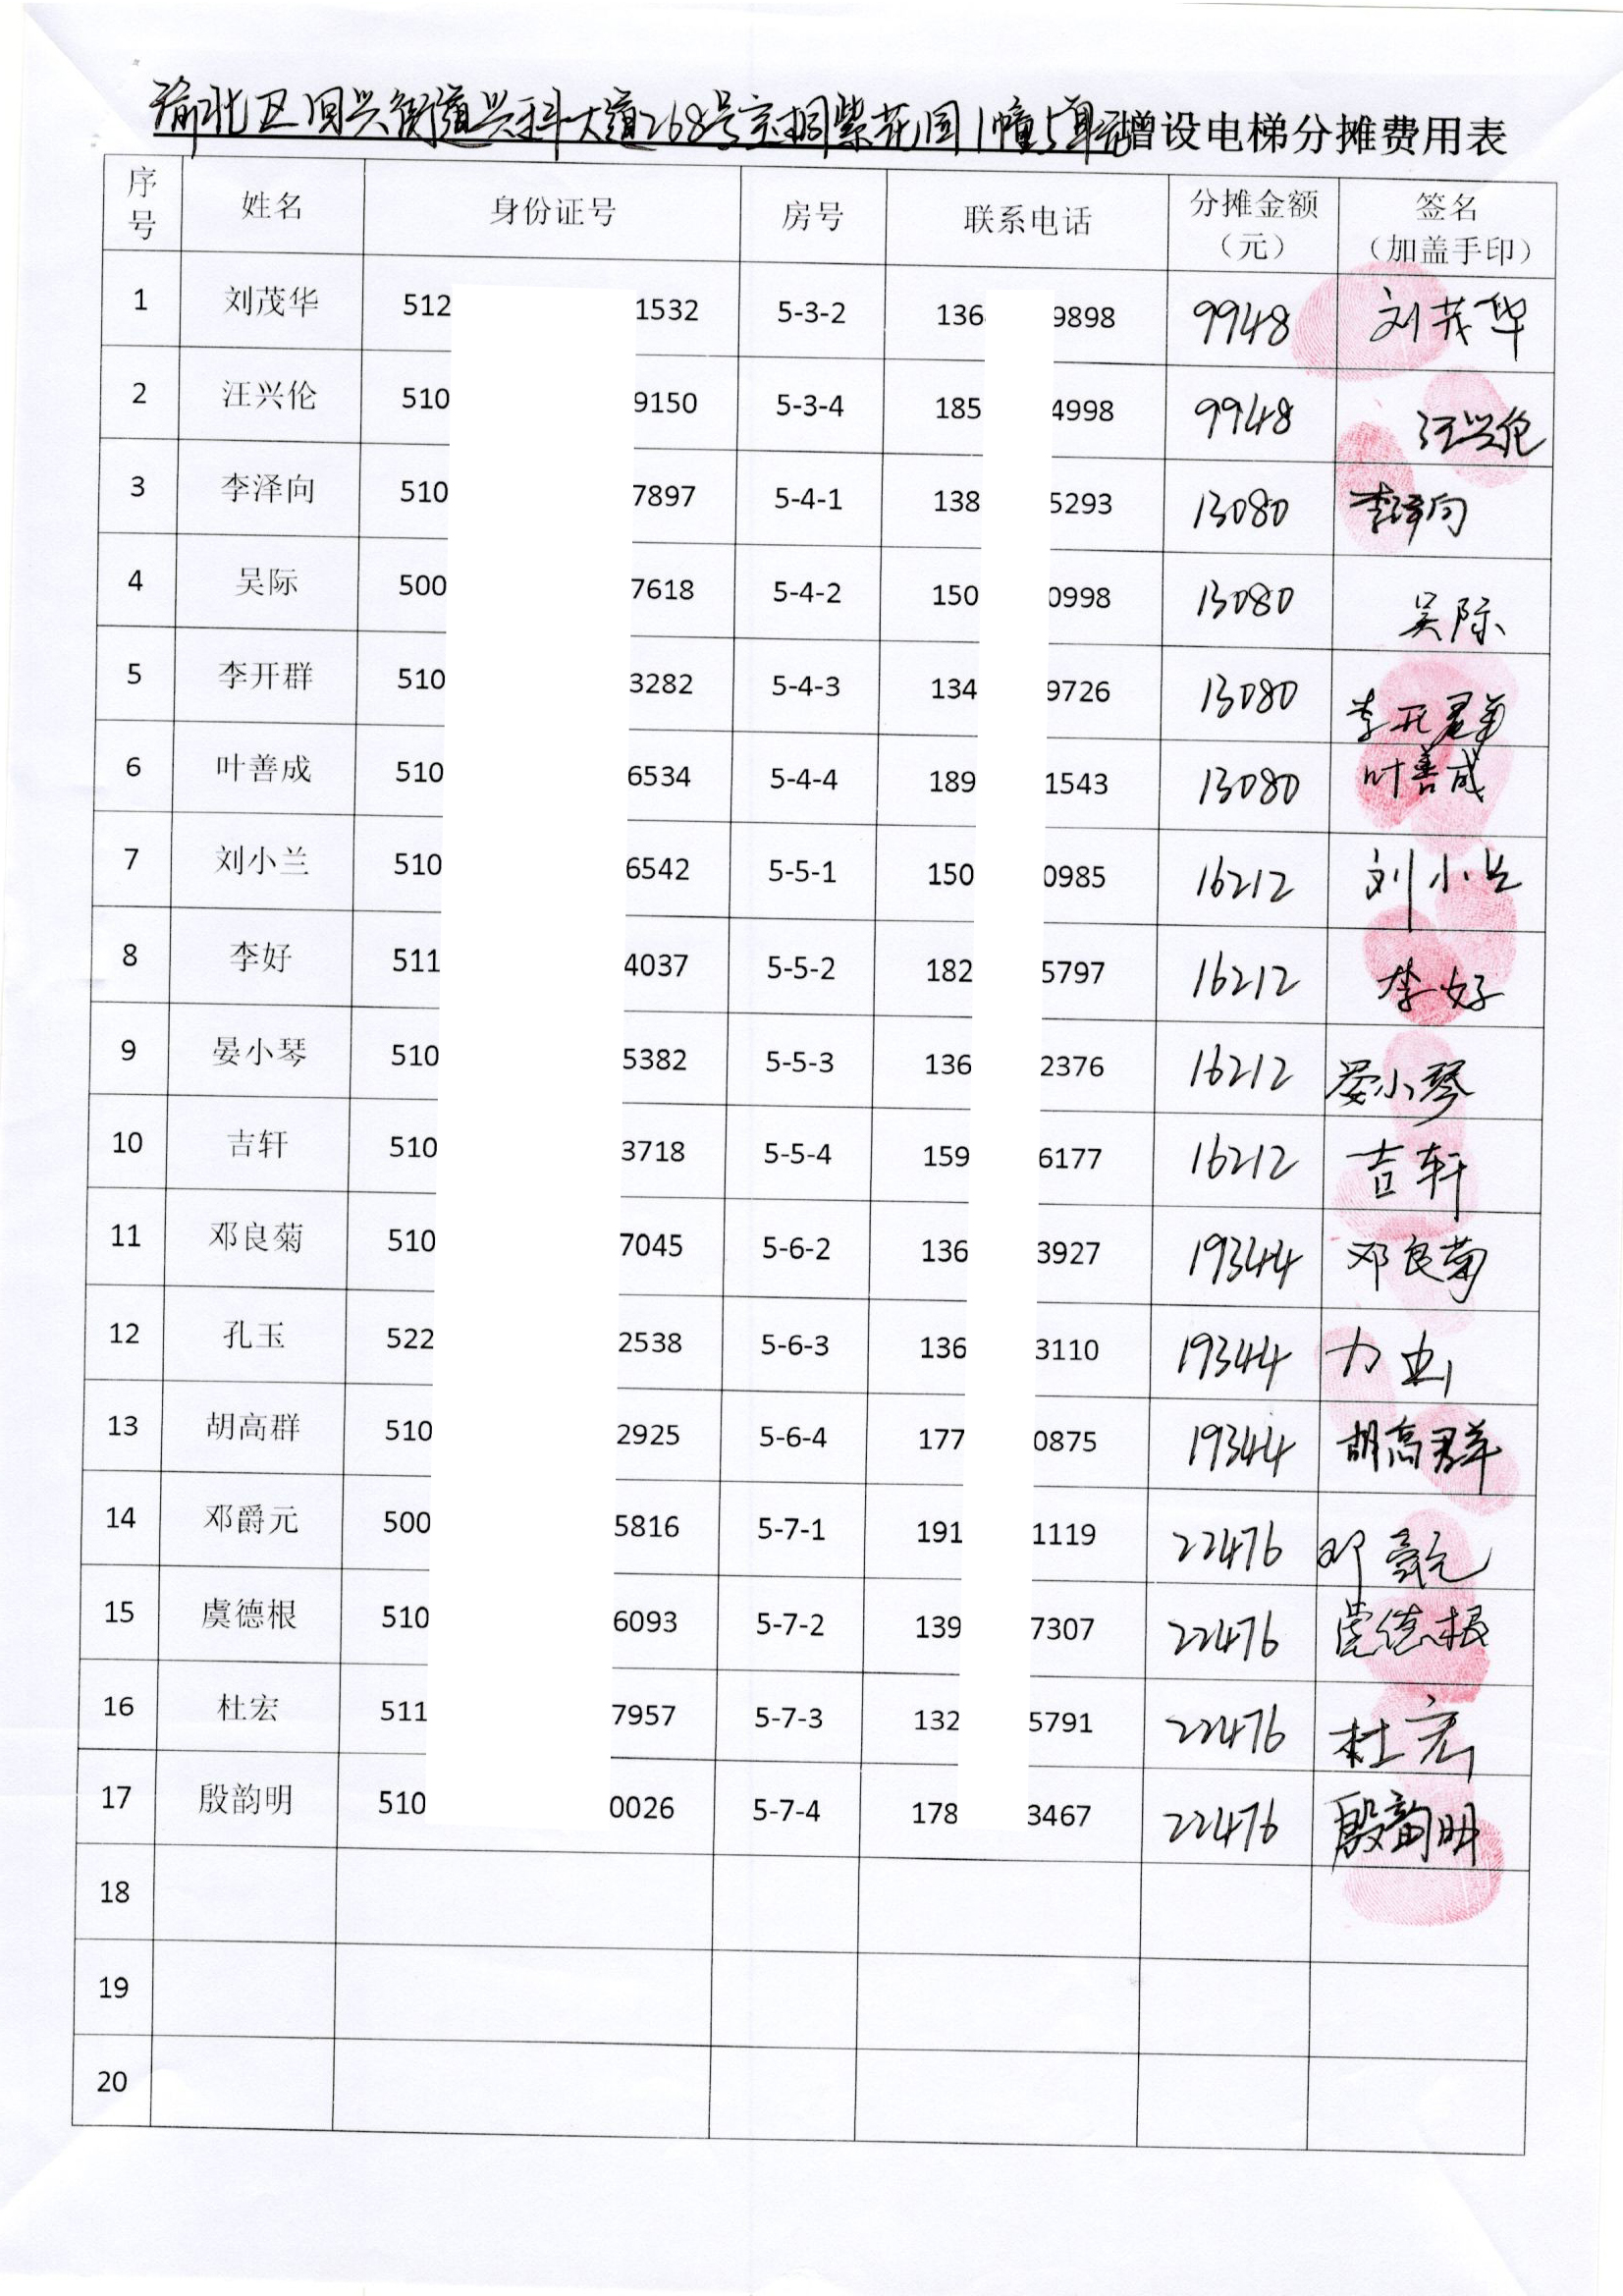 渝北区回兴街道兴科大道268号京桐紫花园1幢5单元增设电梯分摊费用表
序号 姓名 身份证号 房号 联系电话 分摊金额（元） 签名（加盖手印）
1 刘茂华 512 1532 5-3-2 136 9898 9948 刘茂华
2 汪兴伦 510 9150 5-3-4 185 4998 9948 汪兴伦
3 李泽向 510 7897 5-4-1 138 5293 13080 李泽向
4 吴际 500 7618 5-4-2 150 0998 13080 吴际
5 李开群 510 3282 5-4-3 134 9726 13080 李开群
6 叶善成 510 6534 5-4-4 189 1543 13080 叶善成
7 刘小兰 510 6542 5-5-1 150 0985 16212 刘小兰
8 李好 511 4037 5-5-2 182 5797 16212 李好
9 晏小琴 510 5382 5-5-3 136 2376 16212 晏小琴
10 吉轩 510 3718 5-5-4 159 6177 16212 吉轩
11 邓良菊 510 7045 5-6-2 136 3927 19344 邓良菊
12 孔玉 522 2538 5-6-3 136 3110 19344
13 胡高群 510 2925 5-6-4 177 0875 19344 胡高群
14 邓爵元 500 5816 5-7-1 191 1119 22476 邓爵元
15 虞德根 510 6093 5-7-2 139 7307 22476 虞德根
16 杜宏 511 7957 5-7-3 132 5791 22476 杜宏
17 殷韵明 510 0026 5-7-4 178 3467 22476 殷韵明
18
19
20